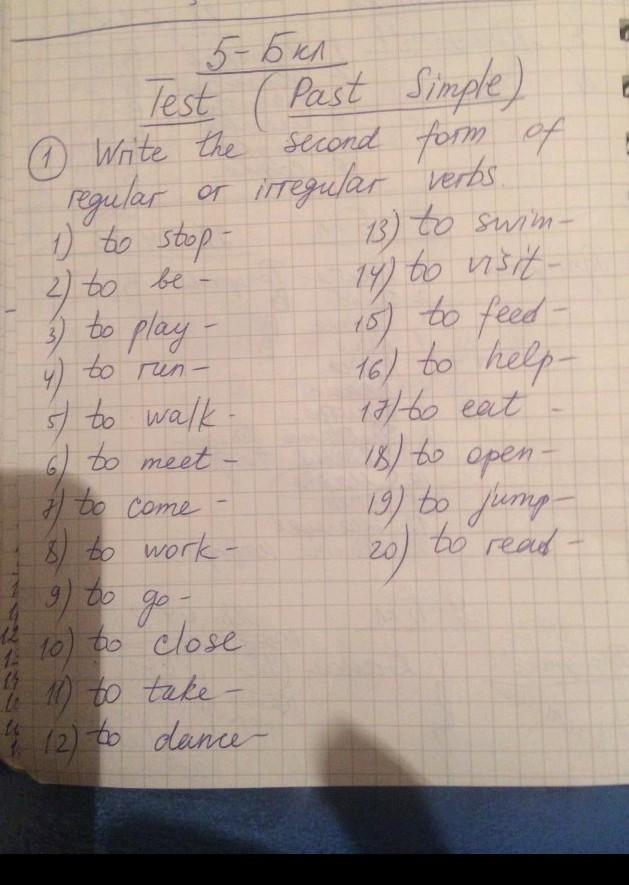 5-Б кл
Test (Past Simple)
① Write the second form of
regular or irregular verbs.
1) to stop -
2) to be -
3) to play -
4) to run -
5) to walk -
6) to meet -
7) to come -
8) to work -
9) to go -
10) to close
11) to take -
12) to dance -
13) to swim -
14) to visit -
15) to feed -
16) to help -
17) to eat -
18) to open -
19) to jump -
20) to read -